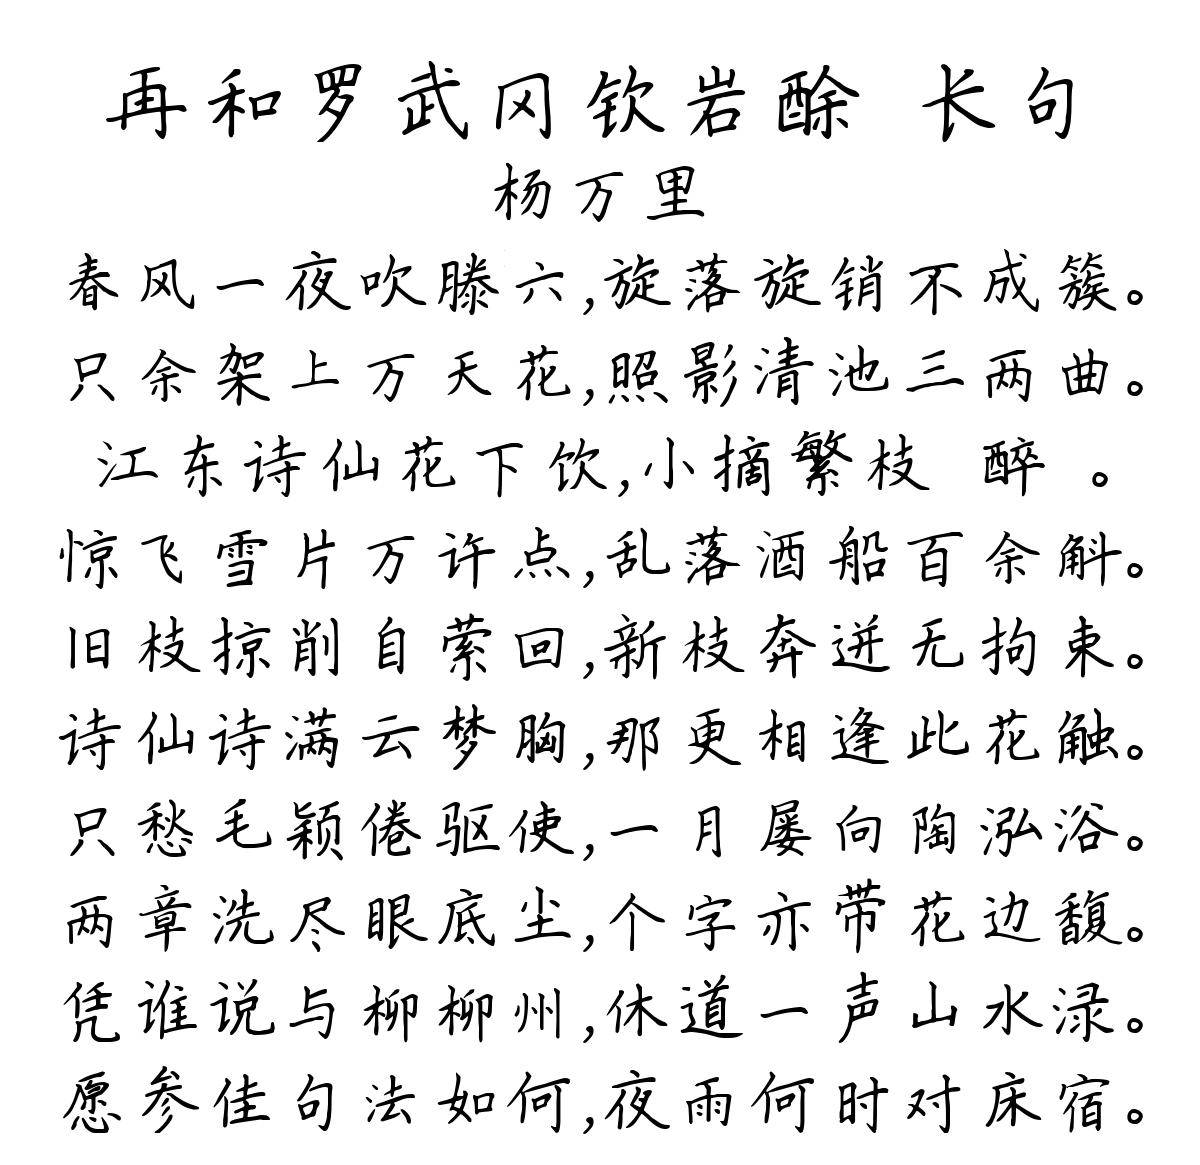 再和罗武冈钦岩酴 长句
杨万里
春风一夜吹滕六,旋落旋销不成簇。
只余架上万天花,照影清池三两曲。
江东诗仙花下饮,小摘繁枝 醉 。
惊飞雪片万许点,乱落酒船百余斛。
旧枝掠削自萦回,新枝奔迸无拘束。
诗仙诗满云梦胸,那更相逢此花触。
只愁毛颖倦驱使,一月屡向陶泓浴。
两章洗尽眼底尘,个字亦带花边馥。
凭谁说与柳柳州,休道一声山水渌。
愿参佳句法如何,夜雨何时对床宿。